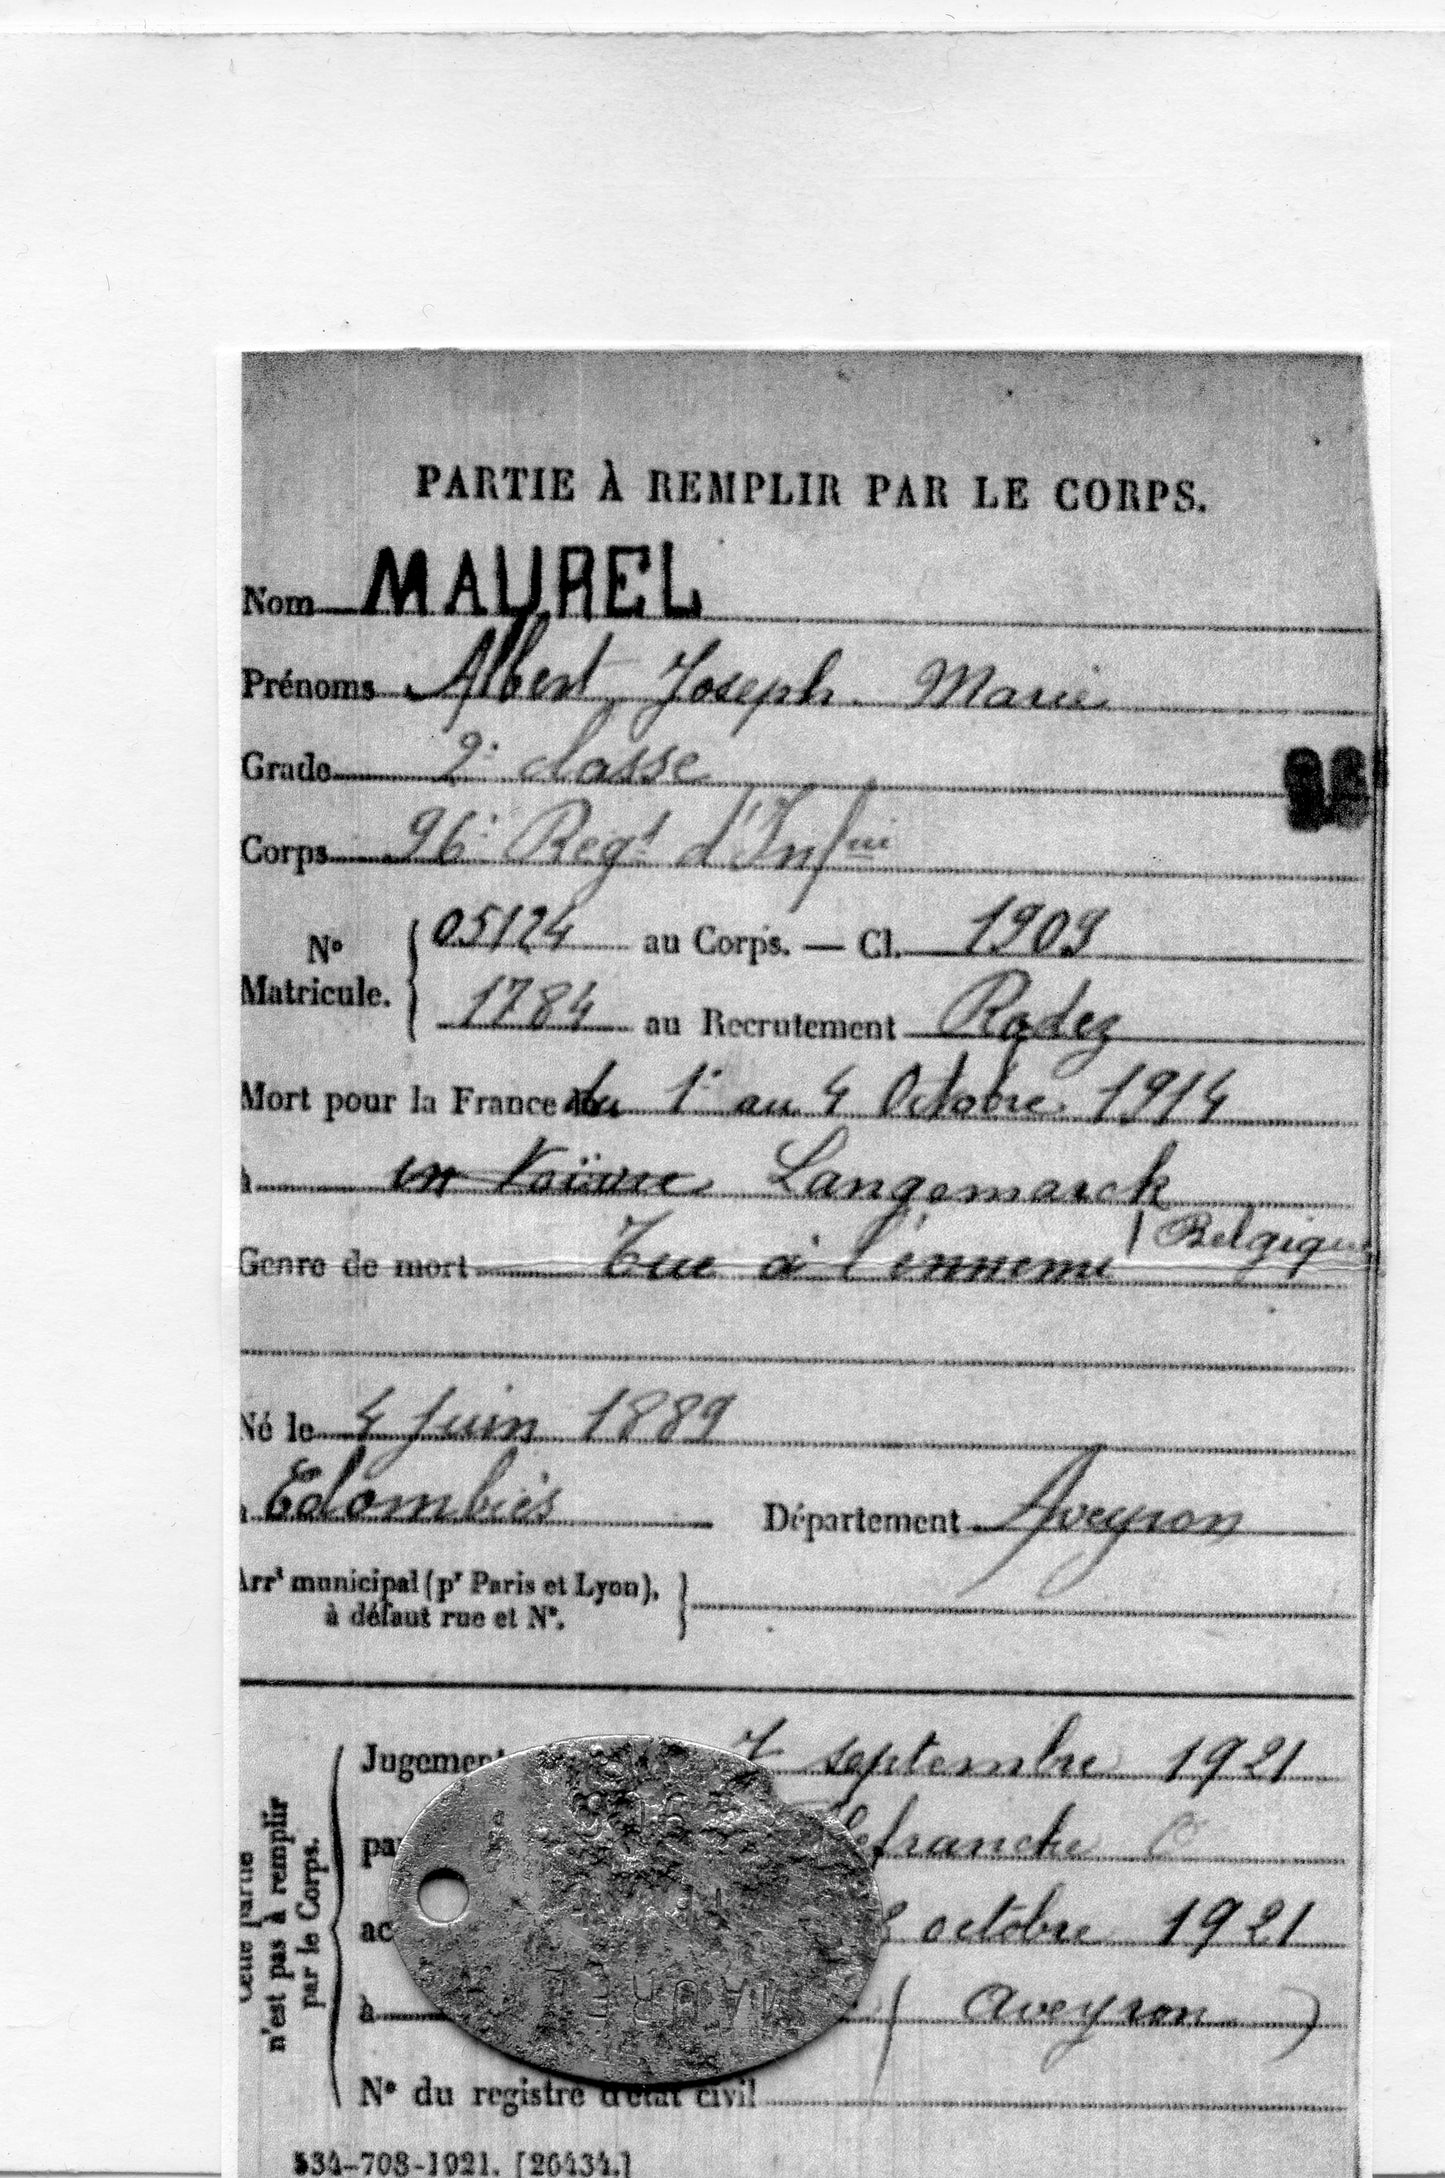 PARTIE À REMPLIR PAR LE CORPS.
Nom MAUREL
Prénoms Albert Joseph Marie
Grade 2e classe
Corps 96e Régt d'Infrie
N° Matricule. { 05124 au Corps. — Cl. 1909
1784 au Recrutement Rodez
Mort pour la France du 1er au 4 Octobre 1914
à en Voëvre Langemarck
(Belgique
Genre de mort Tué à l'ennemi
Né le 4 Juin 1889
à Colombiès Département Aveyron
Arrt municipal (pr Paris et Lyon), à défaut rue et N°. }
Cette partie n'est pas à remplir par le Corps.
Jugement 7 septembre 1921
par lefranche
octobre 1921
à (Aveyron)
N° du registre d'état civil
MAUREL
534-708-1921. [26434.]